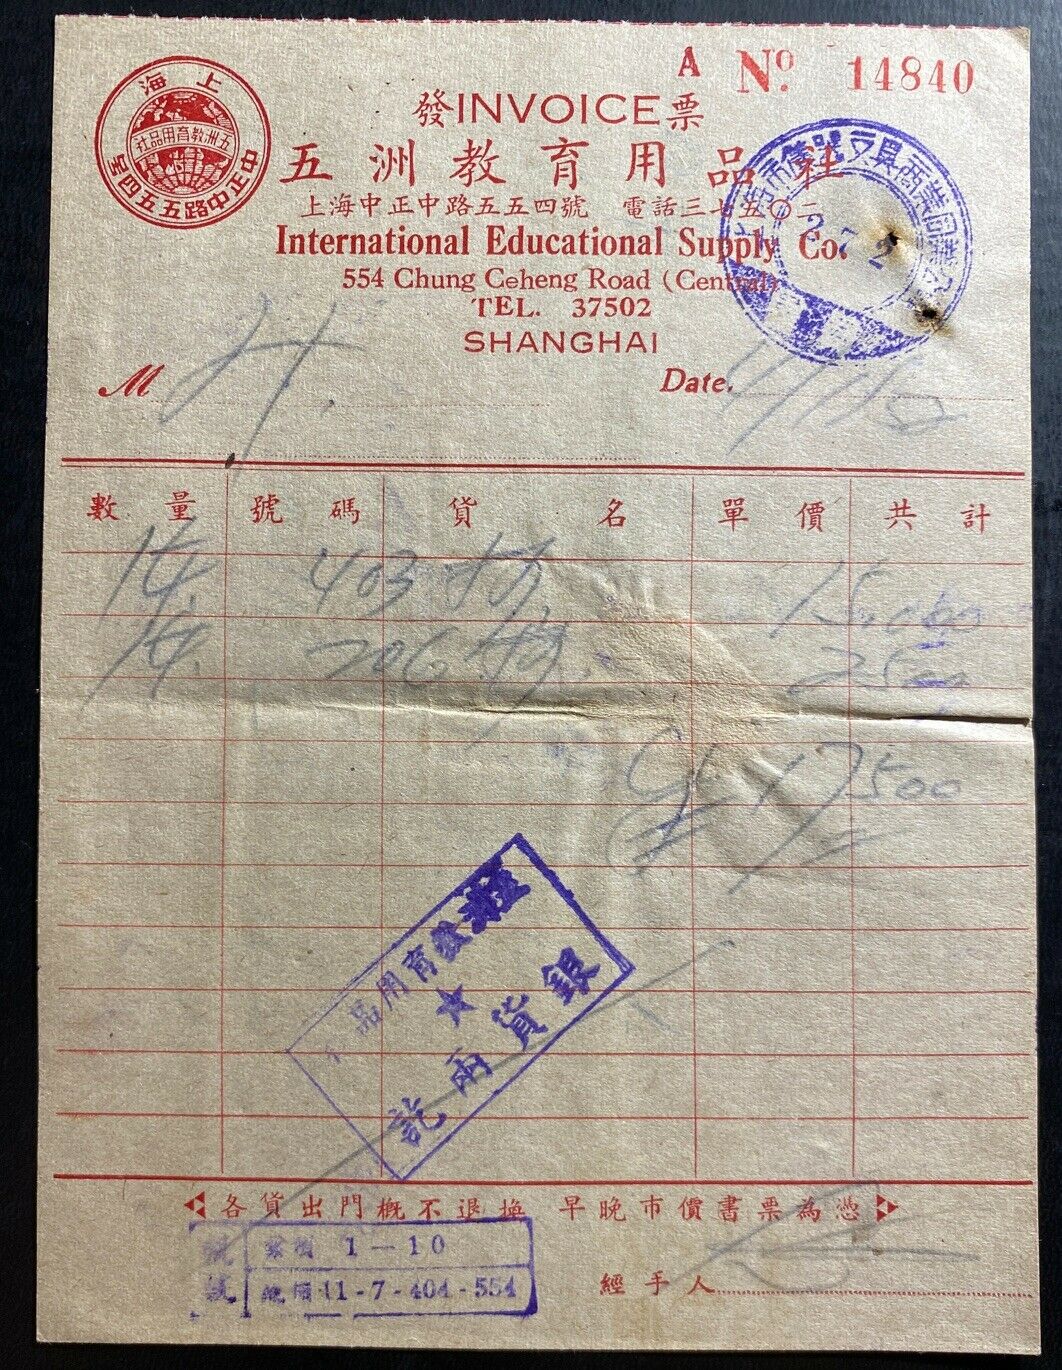 上海
五洲教育用品社
中正中路五五四号
A Nº 14840
發INVOICE票
五洲教育用品社
上海中正中路五五四號 電話三七五〇二
International Educational Supply Co.
554 Chung Ceheng Road (Central)
TEL. 37502
SHANGHAI
M
Date.
數量 號碼 貨名 單價 共計
403 15,000
206 2500
17500
五洲教育用品
★
銀貨兩訖
各貨出門概不退換 早晚市價書票為憑
1-10
11-7-404-554
經手人